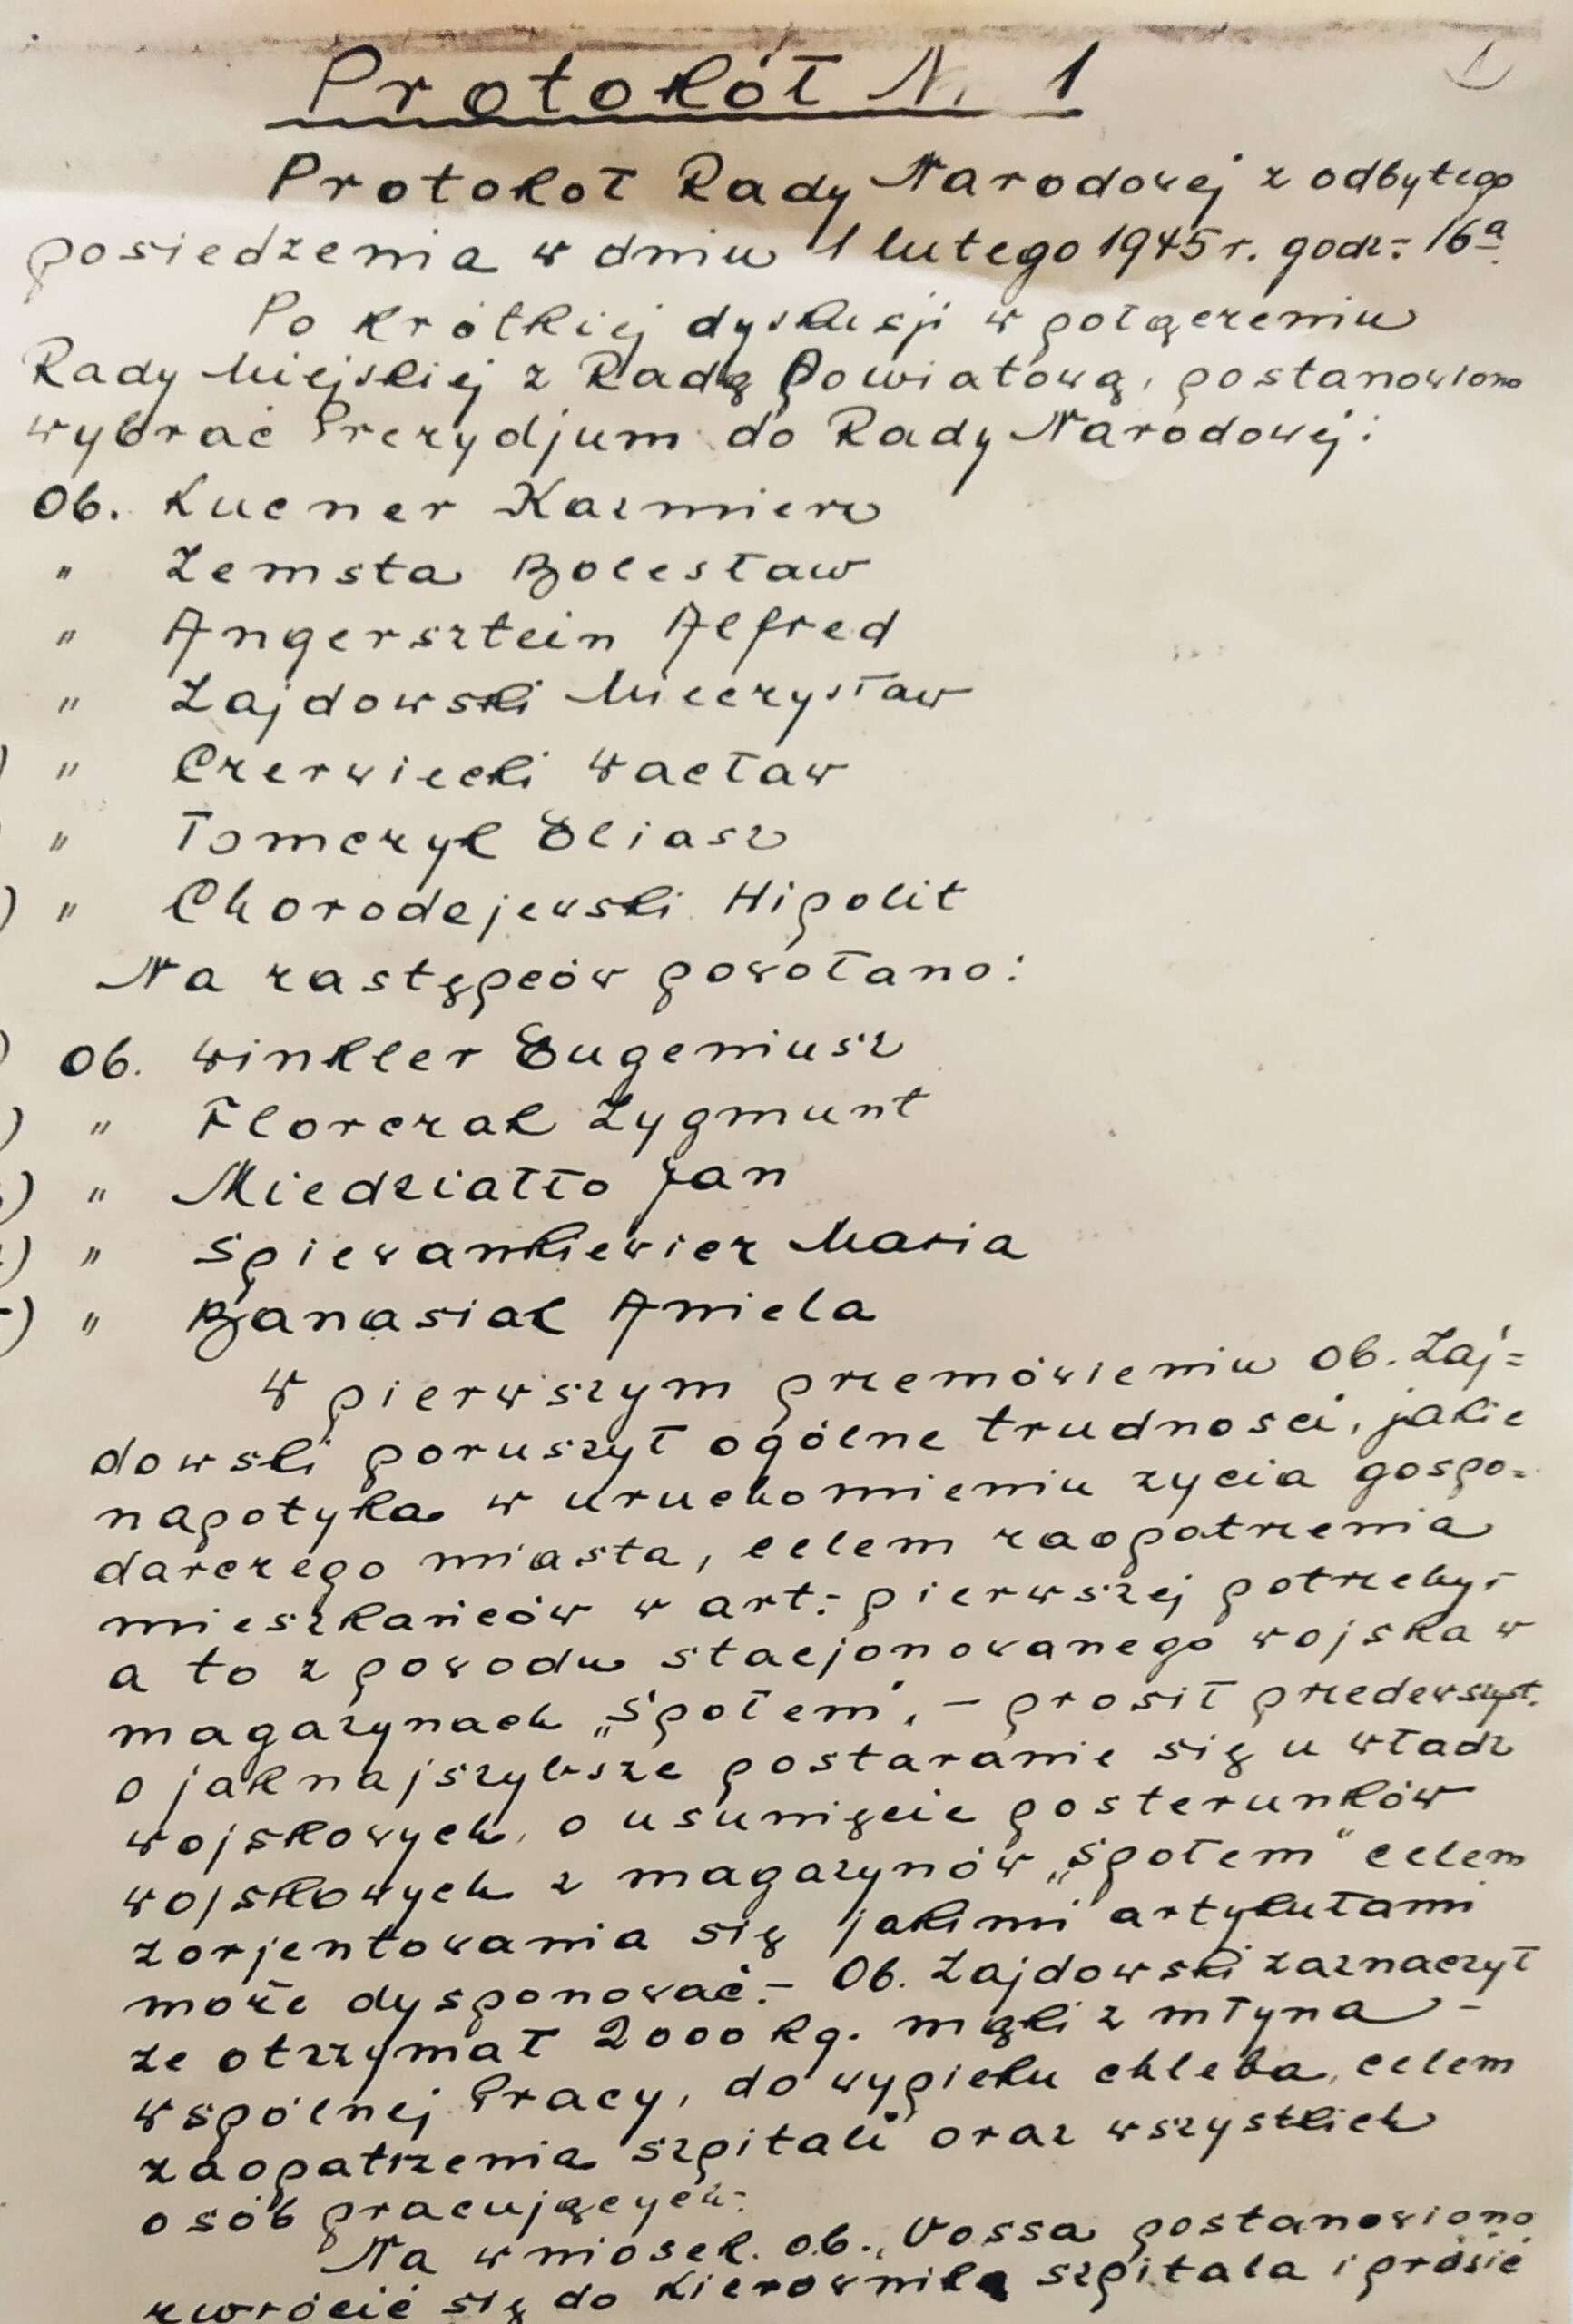 1
Protokół Nr 1
Protokoł Rady Narodowej z odbytego
posiedzenia w dniu 1 lutego 1945 r. godz:- 16ª
Po krótkiej dyskusji w połączeniu
Rady Miejskiej z Radą Powiatową, postanowiono
wybrać Prezydjum do Rady Narodowej:
Ob. Kucner Kazmierz
" Zemsta Bolesław
" Angersztein Alfred
" Zajdowski Mieczysław
) " Czerwiecki Wacław
" Tomczyk Eliasz
) " Chorodejewski Hipolit
Na zastępców powołano:
) Ob. Winkler Eugeniusz
) " Florczak Zygmunt
) " Miedziałło Jan
) " Spiewankiewicz Maria
) " Banasiak Aniela
W pierwszym przemówieniu Ob. Zaj=
dowski poruszył ogólne trudności, jakie
napotyka w uruchomieniu życia gospo=
darczego miasta, celem zaopatrzenia
mieszkańców w art:- pierwszej potrzeby,-
a to z powodu stacjonowanego wojska w
magazynach „Społem", - prosił przedewszyst.
o jaknajszybsze postaranie się u władz
wojskowych, o usunięcie posterunków
wojskowych z magazynów „Społem" celem
zorjentowania się jakimi artykułami
może dysponować.- Ob. Zajdowski zaznaczył
że otrzymał 2000 kg. mąki z młyna -
wspólnej Pracy, do wypieku chleba, celem
zaopatrzenia szpitali oraz wszystkich
osób pracujących:-
Na wniosek. ob., Vossa postanowiono
zwrócić się do Kierownika szpitala i prosić